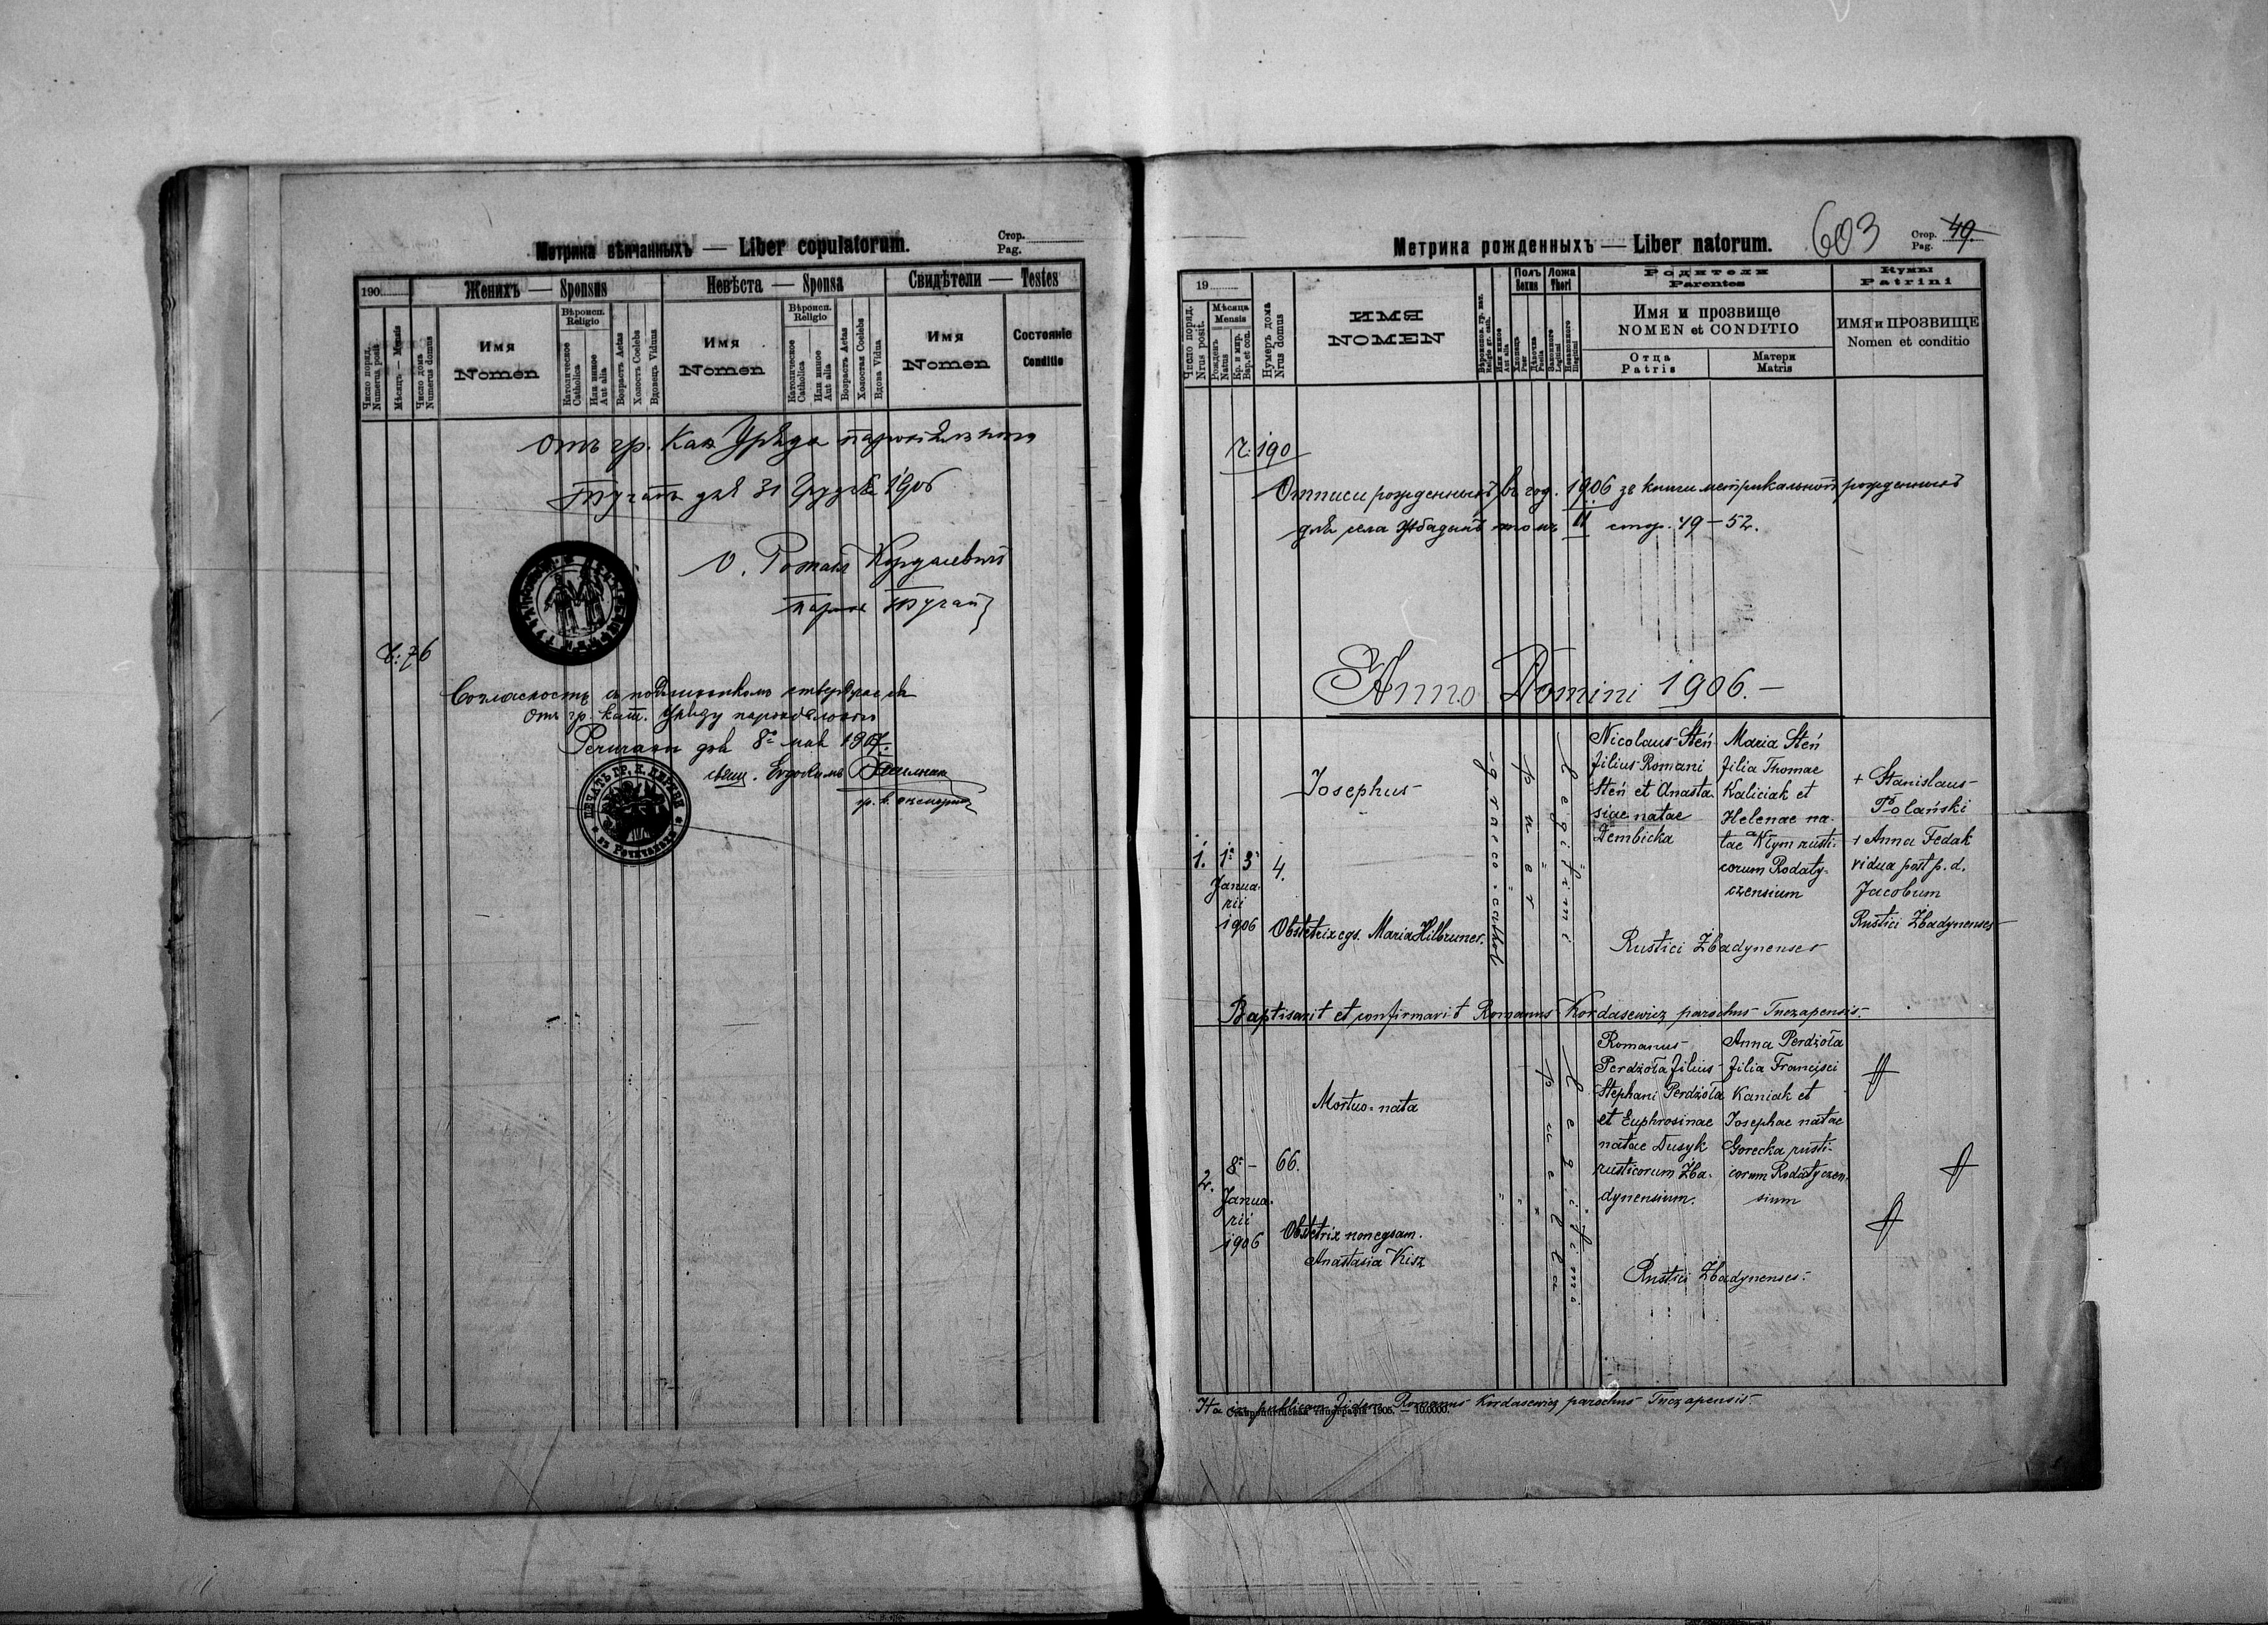 Метрика вѣнчанныхъ — Liber copulatorum.
Стор.
Pag.
190
Женихъ — Sponsus
Невѣста — Sponsa
Свидѣтели — Testes
Число поряд.
Numerus posit.
Мѣсяцъ — Mensis
Число дома
Numerus domus
Имя
Nomen
Вѣроисп.
Religio
Католическое
Catholica
Или иное
Aut alia
Возрастъ Aetas
Холостъ Coelebs
Вдовецъ Viduus
Имя
Nomen
Вѣроисп.
Religio
Католическое
Catholica
Или иное
Aut alia
Возрастъ Aetas
Холостая Coelebs
Вдова Vidua
Имя
Nomen
Состояніе
Conditio
Отъ гр. Кат. Уряда парохіяльного
Тучапы дня 31 Грудня 1906
О. Романъ Кордасевичъ
парох Тучап
Ч: 76
Согласность съ подлинником стверджає ся
Отъ гр. кат. Уряду парохіяльного
дня 8го мая 1907.
свящ. Евдокимъ
ПЕЧАТЬ ГР. К. ЦЕРКВИ
Метрика рожденныхъ — Liber natorum.
603
Стор.
Pag.
49.
19
Число поряд.
Nrus posit.
Мѣсяца
Mensis
Рожденъ
Natus
Кр. и мир.
Bap. et con.
Нумеръ дома
Nrus domus
ИМЯ
NOMEN
Вѣроиспов. гр. кат.
Religio gr. cath.
Или иное
Aut alia
Полъ
Sexus
Хлопецъ
Puer
Дѣвочка
Puella
Ложа
Thori
Законного
Legitimi
Незаконного
Illegitimi
Родители
Parentes
Имя и прозвище
NOMEN et CONDITIO
Отца
Patris
Матери
Matris
Кумы
Patrini
ИМЯ и ПРОЗВИЩЕ
Nomen et conditio
Ч: 190
Отписи рожденныхъ въ год. 1906 зъ книги метрикальной рожденныхъ
для села Жбадынь томъ II стор. 49 – 52.
Anno Domini 1906.—
1.
1ª 3ª
Janua-
rii
1906
4.
Josephus
Obstetrix egs. Maria Hilbruner.
graeco-cathol.
puer
Legitimi
Nicolaus Steń
filius Romani
Steń et Anasta-
siae natae
Dembicka
Maria Steń
filia Thomae
Kaliciak et
Helenae na-
tae Klym rusti-
corum Rodaty-
czensium
Rustici Żbadynenses
+ Stanislaus
Polański
+ Anna Fedak
vidua post p. d.
Jacobum
Rustici Żbadynenses
Baptisavit et confirmavit Romanus Kordasewicz parochus Tuczapensis.
2.
8ª –
Janua-
rii
1906
66.
Mortuo-nata
Obstetrix non egsam.
Anastasia Kisz
puella
Legitimi
Romanus
Perdżoła filius
Stephani Perdżoła
et Euphrosinae
natae Dusyk
rusticorum Żba-
dynensium.
Anna Perdżoła
filia Francisci
Kaniak et
Josephae natae
Gorecka rusti-
corum Rodatyczen-
sium
Rustici Żbadynenses.
Ita in publicam fidem Romanus Kordasewicz parochus Tuczapensis.
Ставропигійская типографія 1905. — 10.0000.